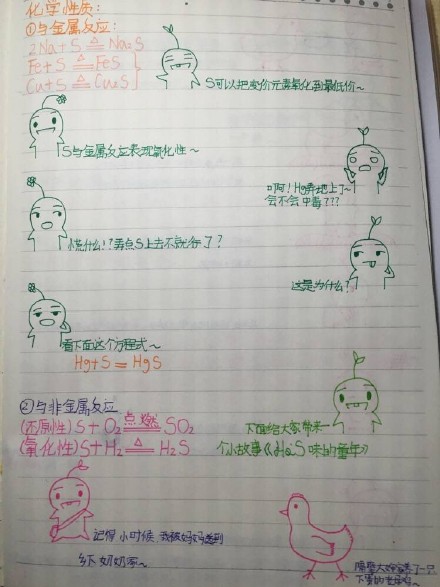 化学性质:
①与金属反应:
2Na+S △ Na₂S
Fe+S △ FeS
Cu+S △ Cu₂S
S可以把变价元素氧化到最低价~
S与金属反应表现氧化性~
啊!Hg弄地上了~
会不会中毒???
慌什么!?弄点S上去不就行了?
这是为什么?
看下面这个方程式~
Hg+S=HgS
②与非金属反应
(还原性)S+O₂ 点燃 SO₂
(氧化性)S+H₂ △ H₂S
下面给大家带来一
个小故事《H₂S味的童年》
记得小时候,我被妈妈送到
乡下奶奶家~
隔壁大婶送了一只